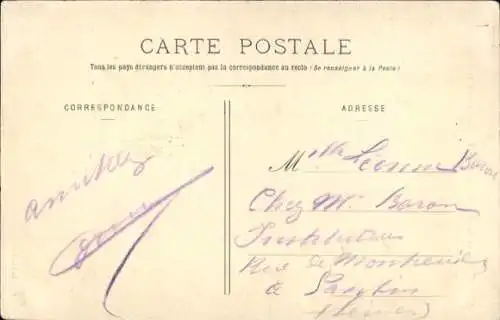 CARTE POSTALE
Tous les pays étrangers n'acceptent pas la correspondance au recto (Se renseigner à la Poste)
CORRESPONDANCE
ADRESSE
Amitiés
Mlle Baron
Chez Mr Baron
Instituteur
Rue de Montreuil
à Pantin
(Seine)